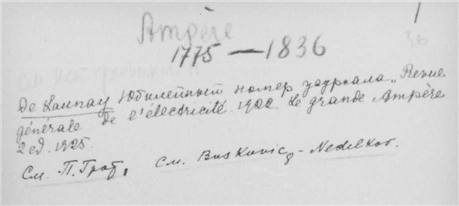 1
Ampère
1775 — 1836
De Launay Юбилейный номер журнала „Revue
générale de l'électricité. 1922. Le grande Ampère
2 ed. 1925.
См. П. Граф, См. Buskovic - Nedelkov.